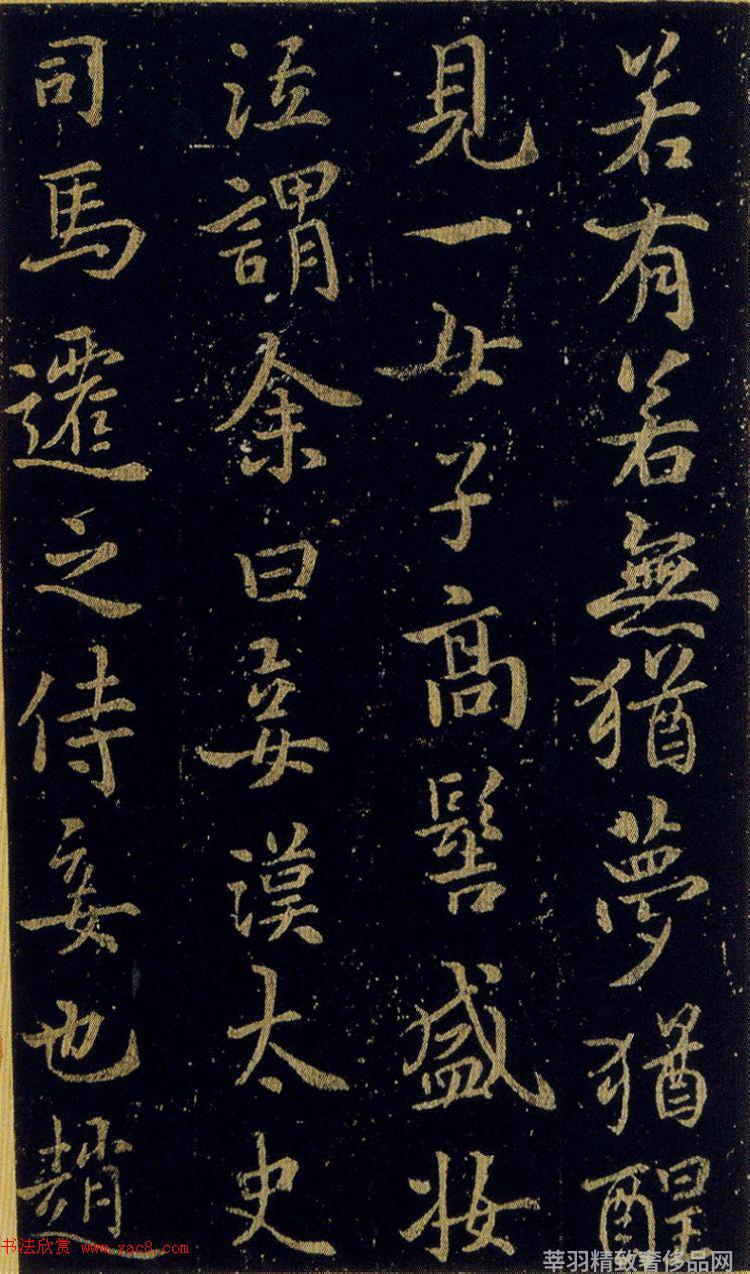 若有若無猶夢猶醒
見一女子高髻盛妝
泣謂余曰妾漢太史
司馬遷之侍妾也趙
书法欣赏 www.yac8.com
莘羽精致奢侈品网